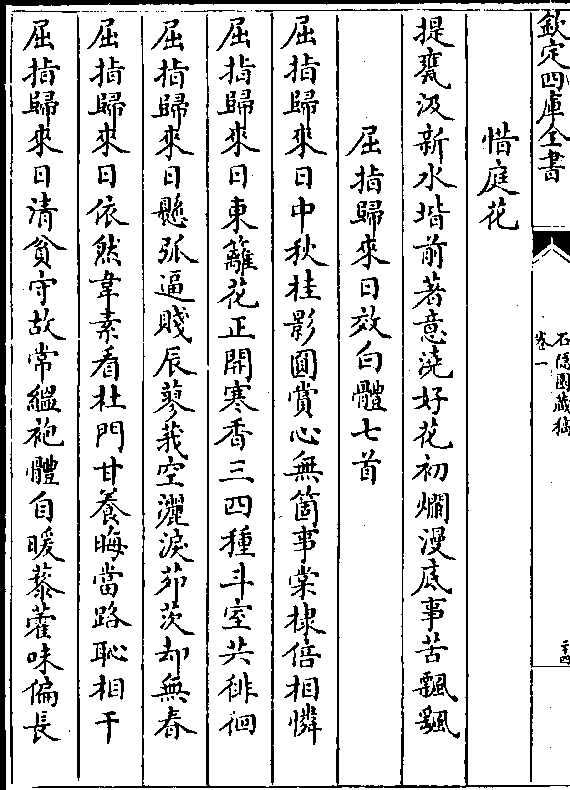 欽定四庫全書
石隱園藏稿
卷一
二十四
惜庭花
提甕汲新水堦前著意澆好花初爛漫底事苦飄颻
屈指歸來日效白體七首
屈指歸來日中秋桂影圓賞心無箇事棠棣倍相憐
屈指歸來日東籬花正開寒香三四種斗室共徘徊
屈指歸來日懸弧逼賤辰蓼莪空灑淚茆茨却無春
屈指歸來日依然韋素看杜門甘養晦當路恥相干
屈指歸來日清貧守故常縕袍體自暖藜藿味偏長